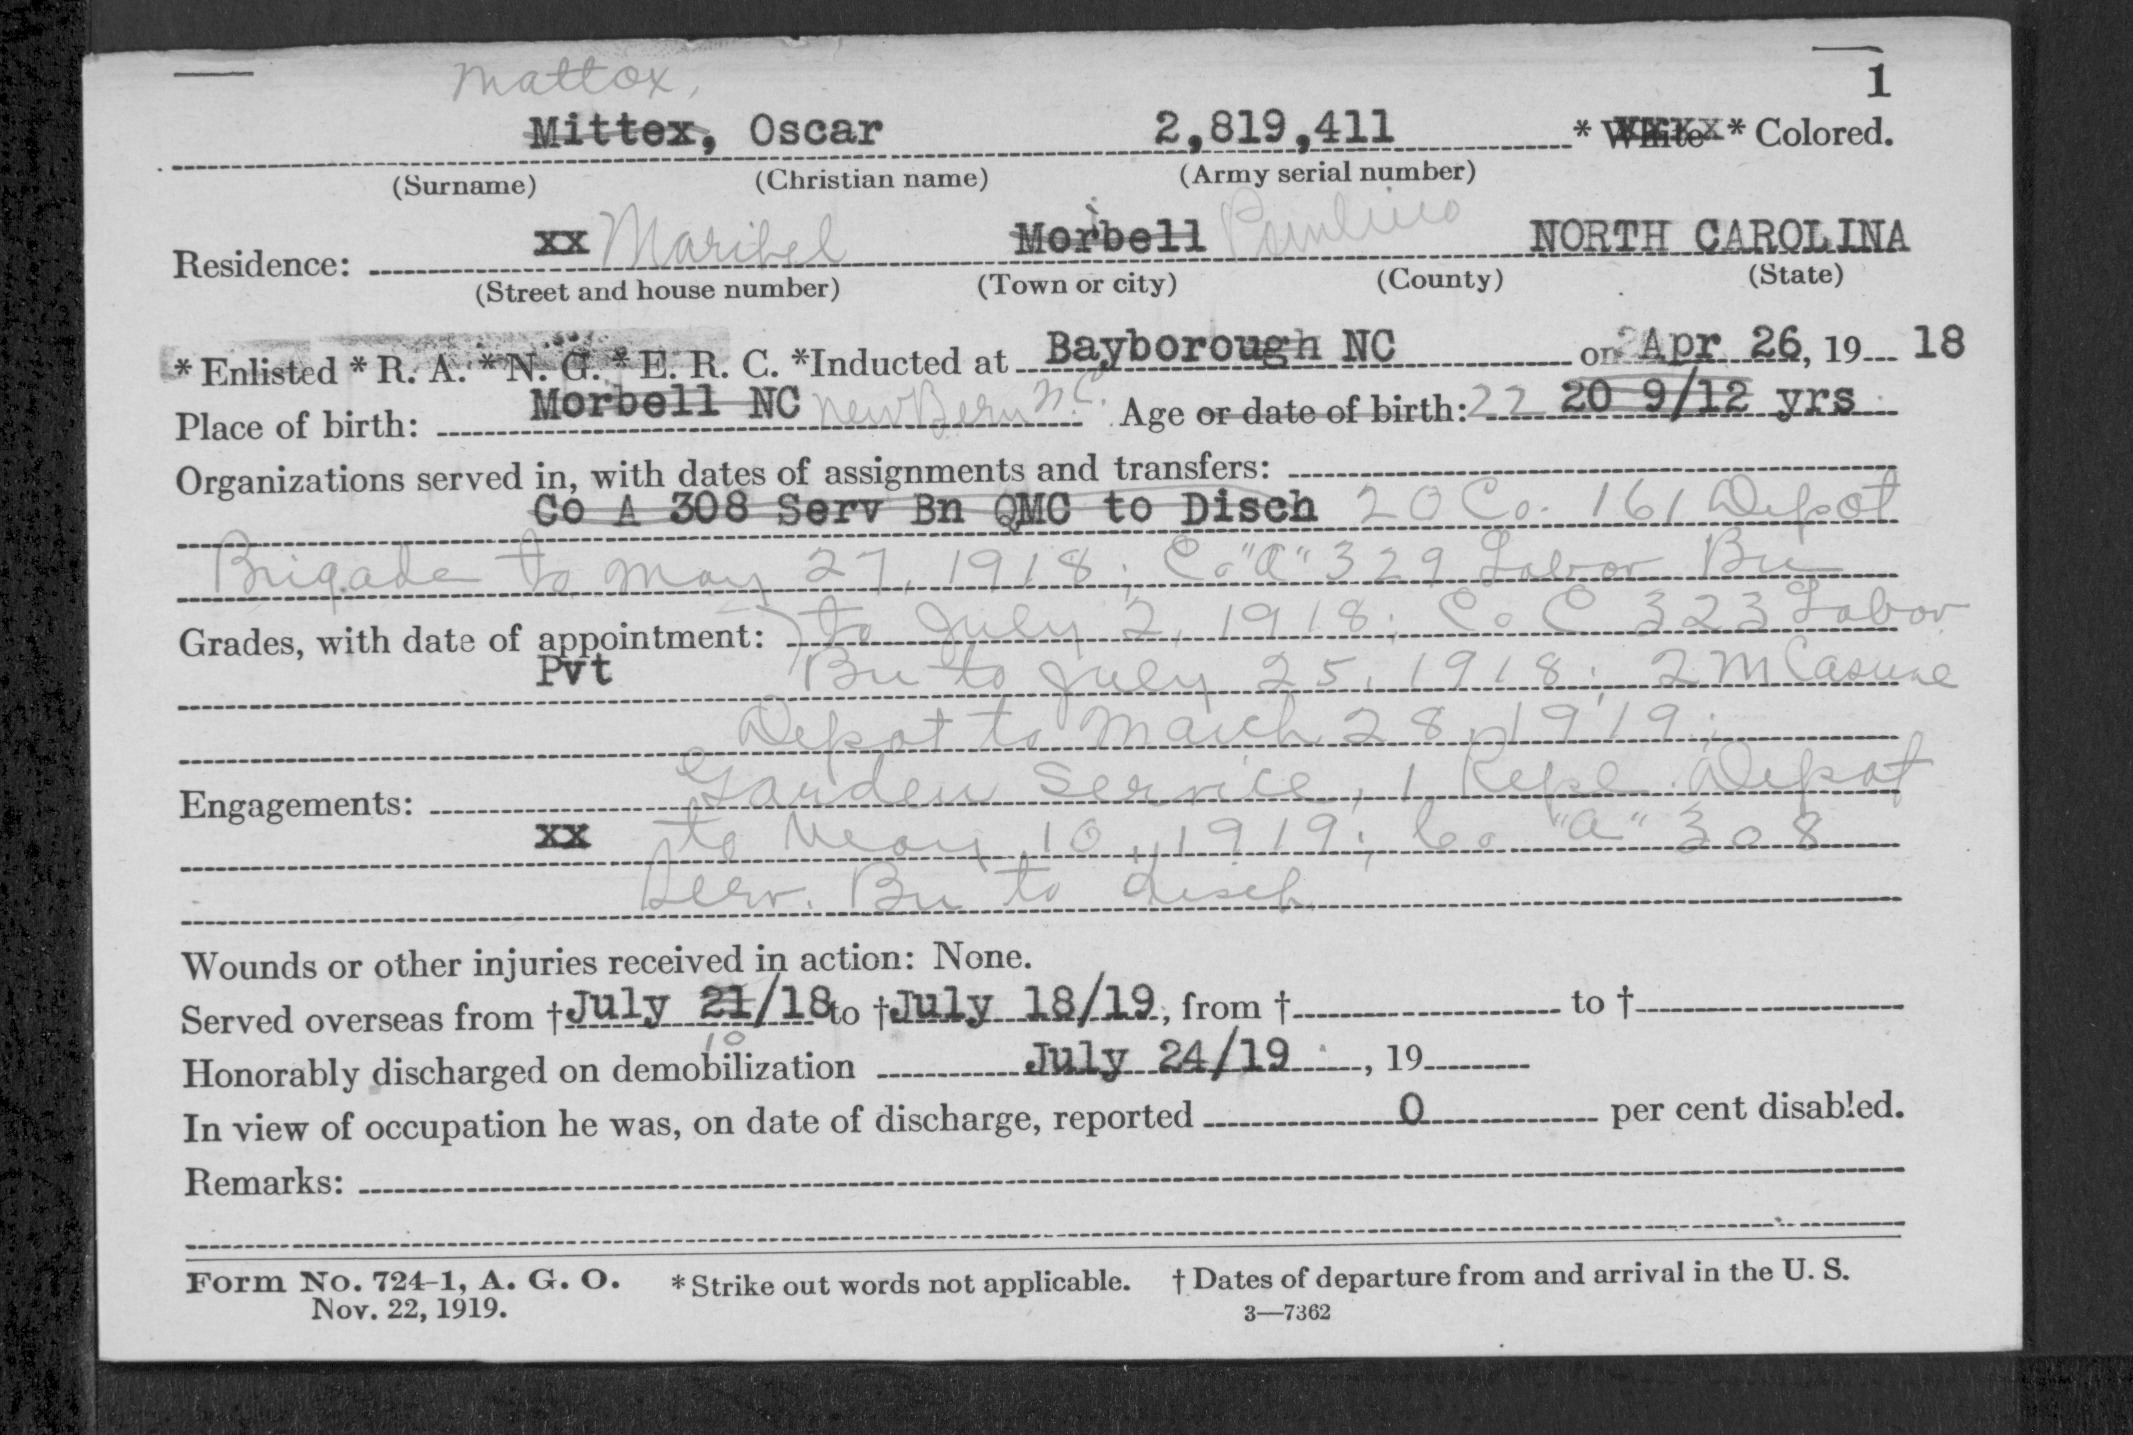 Mattox,
1
Mittex, Oscar 2,819,411 * White * Colored.
(Surname) (Christian name) (Army serial number)
Residence: xx Maribel Morbell Pamlico NORTH CAROLINA
(Street and house number) (Town or city) (County) (State)
* Enlisted * R. A. * N. G. * E. R. C. *Inducted at Bayborough NC on Apr 26, 19 18
Place of birth: Morbell NC New Bern N.C. Age or date of birth: 22 20 9/12 yrs
Organizations served in, with dates of assignments and transfers:
Co A 308 Serv Bn QMC to Disch 20 Co. 161 Depot
Brigade to May 27, 1918; Co "A" 329 Labor Bn
Grades, with date of appointment: to July 2, 1918; Co C 323 Labor
Pvt Bn to July 25, 1918; 2 M Casual
Depot to March 28, 1919;
Engagements: Garden Service, 1 Repl. Depot
xx to May 10, 1919; Co "A" 308
Serv. Bn to disch
Wounds or other injuries received in action: None.
Served overseas from †July 21/18 to †July 18/19, from † to †
10
Honorably discharged on demobilization July 24/19, 19
In view of occupation he was, on date of discharge, reported 0 per cent disabled.
Remarks:
Form No. 724-1, A. G. O. * Strike out words not applicable. † Dates of departure from and arrival in the U. S.
Nov. 22, 1919. 3—7362